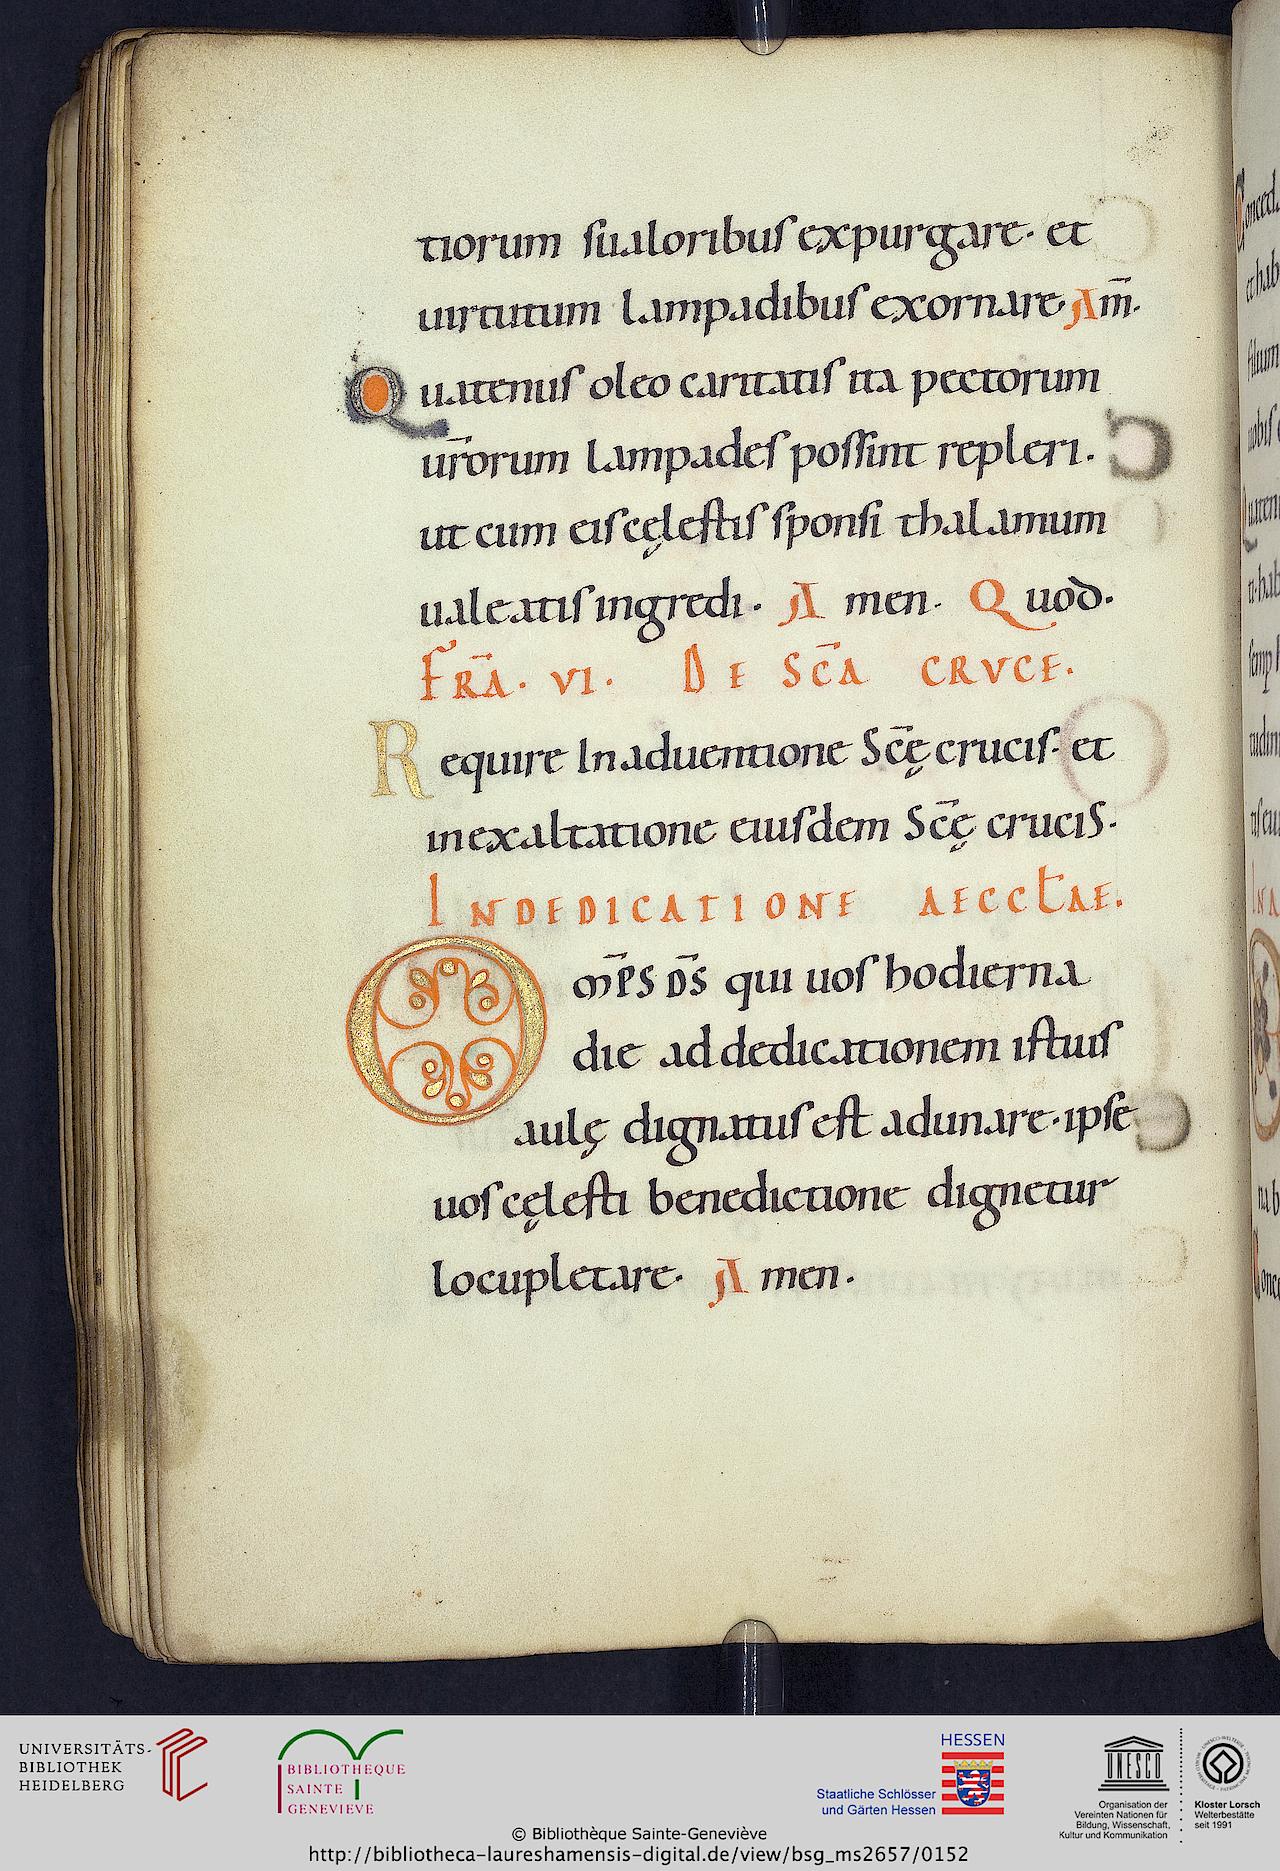 tiorum sualoribus expurgare· et
uirtutum lampadibus exornare· Am̄.
Quatenus oleo caritatis ita pectorum
ur̄orum lampades possint repleri.
ut cum eis cęlestis sponsi thalamum
ualeatis ingredi· Amen· Quod·
FR̄A· VI· DE SC̄A CRVCE·
Require In aduentione Sc̄ę crucis· et
in exaltatione eiusdem Sc̄ę cruciS·
IN DEDICATIONE AECCŁAE·
Om̄PS D̄S qui uos hodierna
die ad dedicationem istius
aulę dignatus est adunare· ipse
uos cęlesti benedictione dignetur
locupletare· Amen·
UNIVERSITÄTS-
BIBLIOTHEK
HEIDELBERG
BIBLIOTHEQUE
SAINTE
GENEVIEVE
HESSEN
Staatliche Schlösser
und Gärten Hessen
UNESCO
Organisation der
Vereinten Nationen für
Bildung, Wissenschaft,
Kultur und Kommunikation
Kloster Lorsch
Welterbestätte
seit 1991
© Bibliothèque Sainte-Geneviève
http://bibliotheca-laureshamensis-digital.de/view/bsg_ms2657/0152